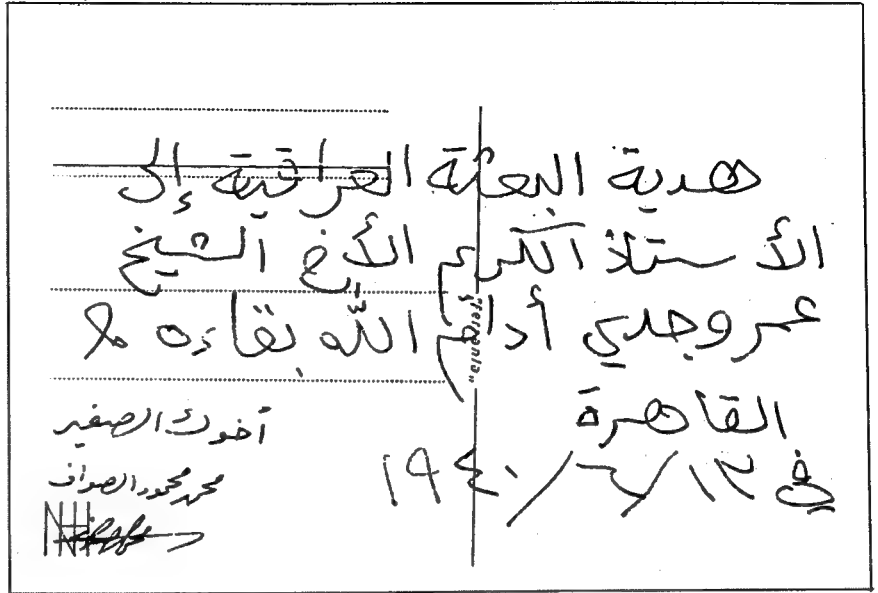 هدية البعثة العراقية إلى
الأستاذ الكريم الأخ الشيخ
عمر وجدي أدام الله بقاءه
القاهرة
في ١٩٤٠
أخوك الصغير
محمد محمود الصواف